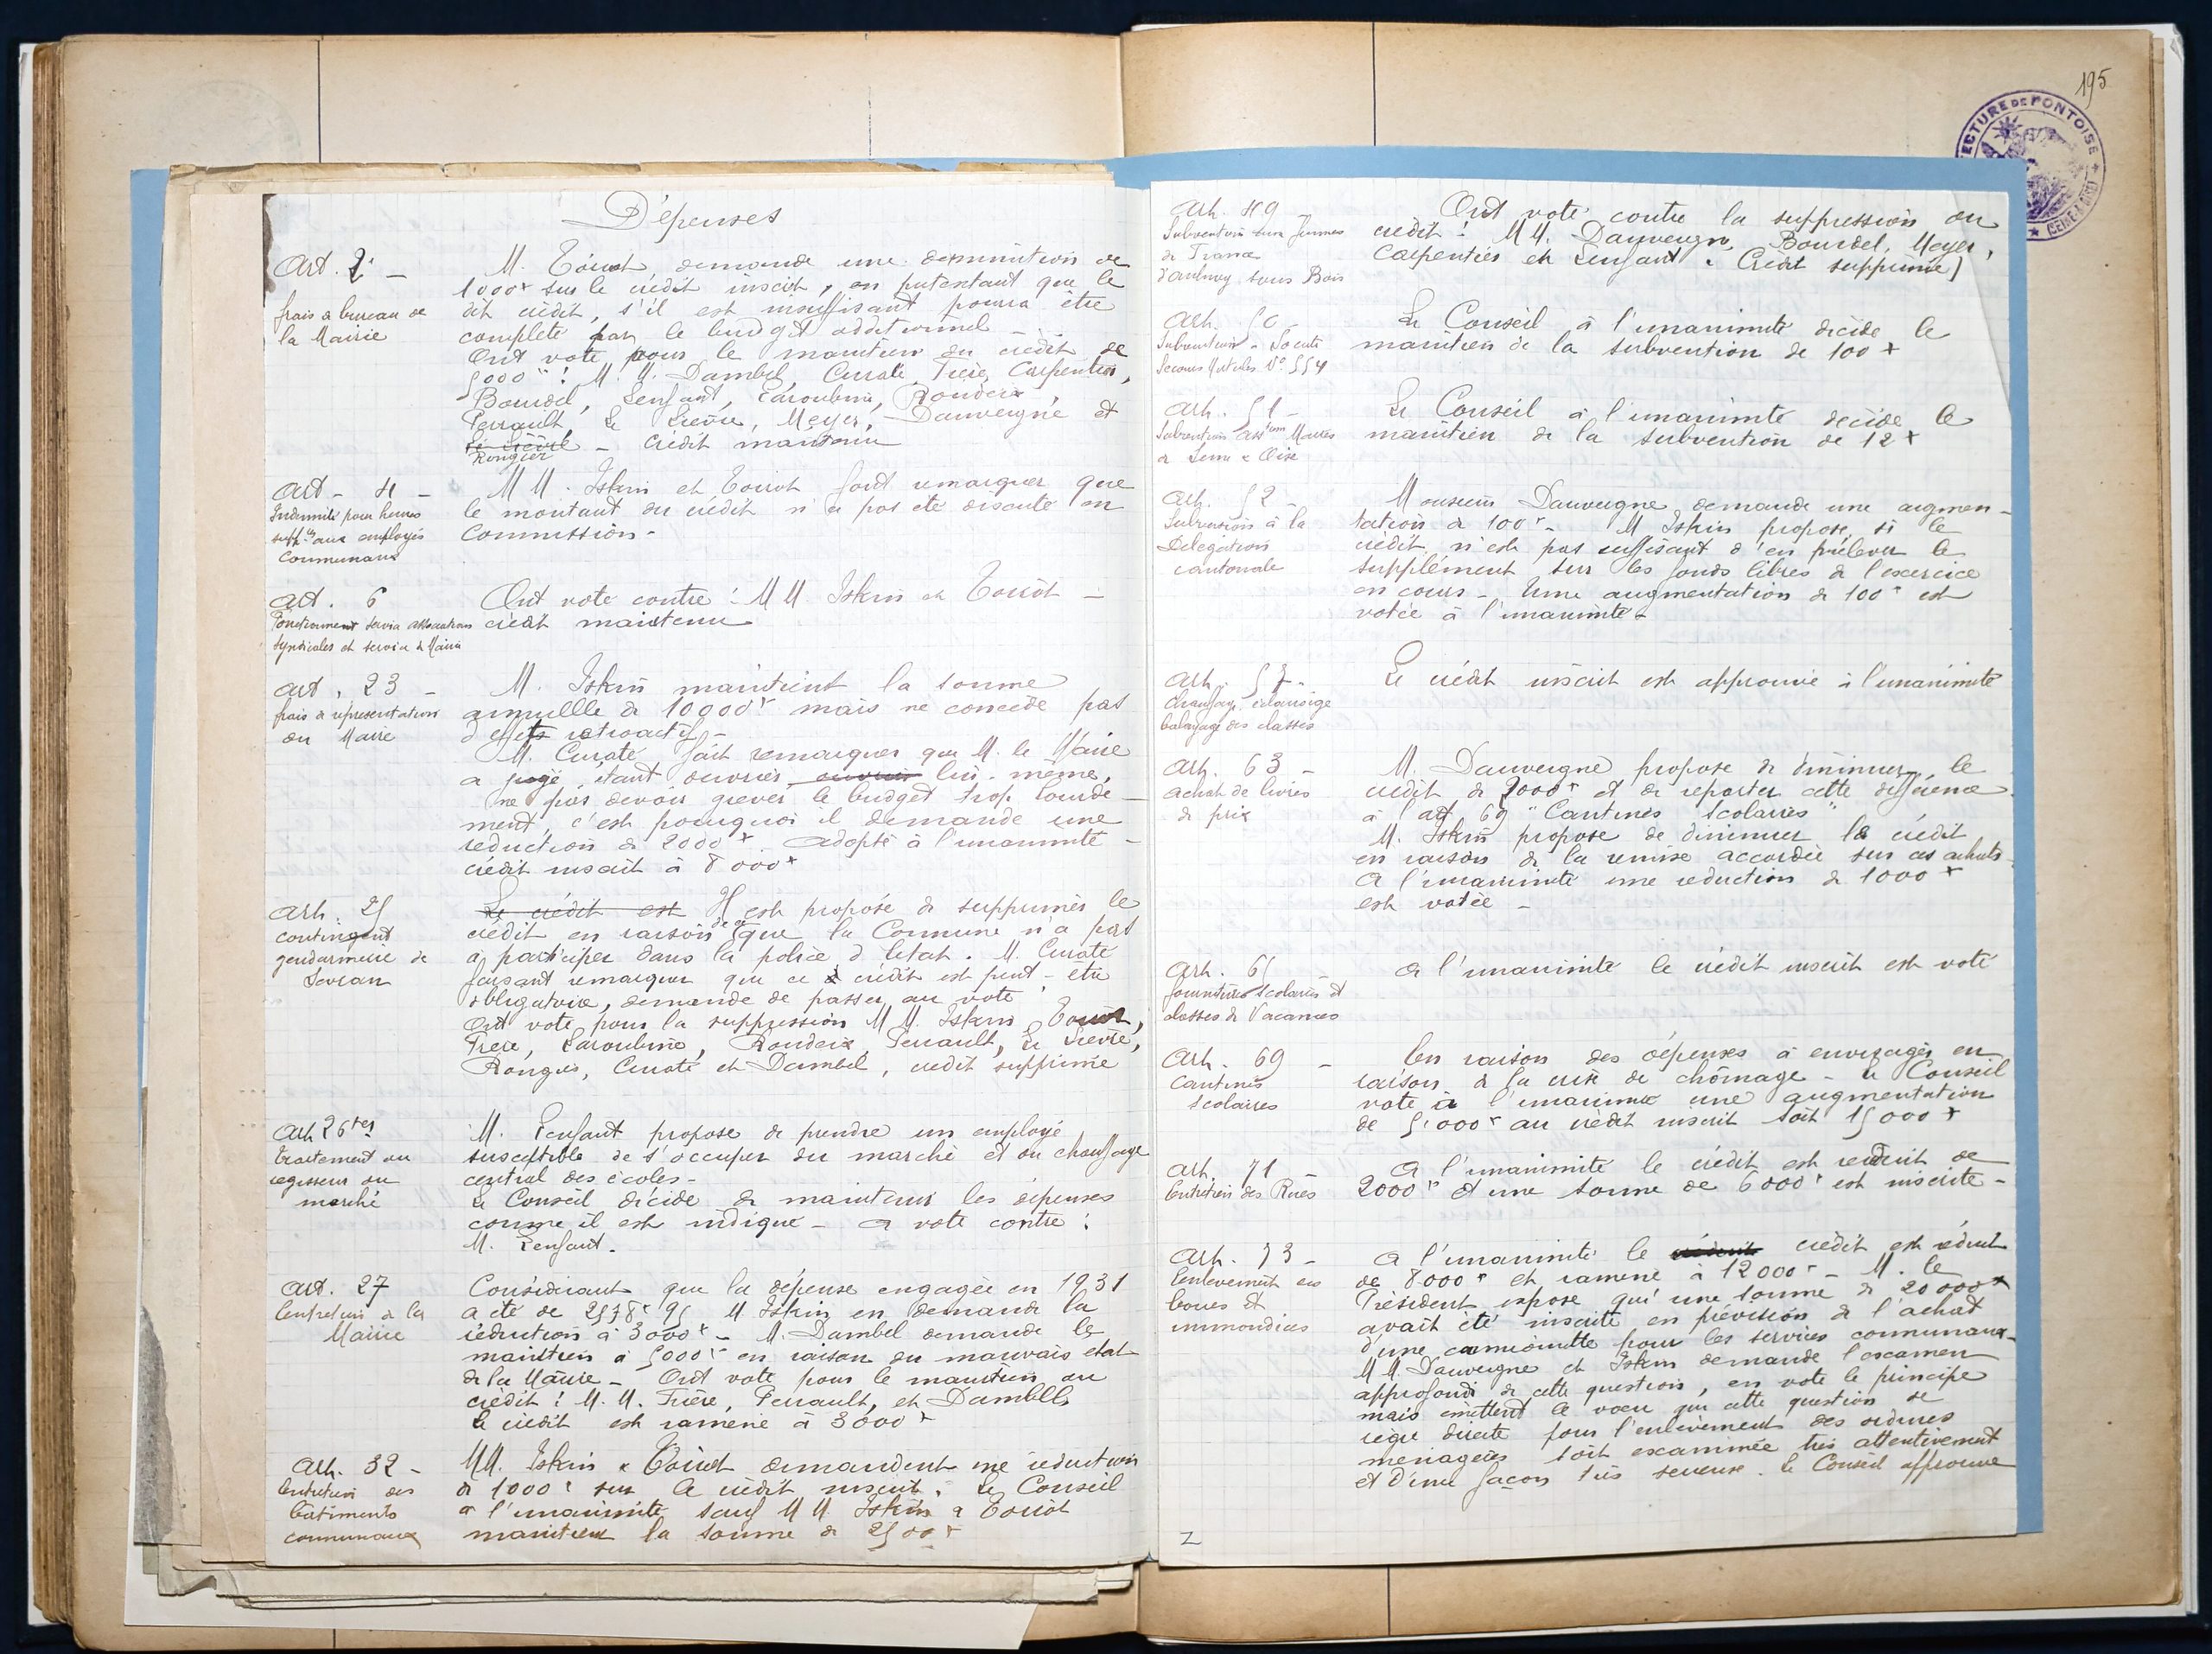 195
SOUS-PRÉFECTURE DE PONTOISE
(SEINE & OISE)
Dépenses
Art. 2 -
frais de bureau de
la Mairie
M. Toirot demande une diminution de
1000 f sur le crédit inscrit, en prétextant que le
dit crédit, s'il est insuffisant pourra être
completé par le budget additionnel -
Ont voté pour le maintien du crédit de
5000 f : M.M. Dambel, Curaté, Frère, Carpentier,
Bourdel, Lenfant, Laroubine, Rondeix,
Perrault, Le Lièvre, Meyer, Dauvergne et
Le Lièvre - Crédit maintenu
Rongier
Art - 4 -
Indemnité pour heures
suppres aux employés
Communaux
MM. Iskin et Toirot font remarquer que
le montant du crédit n'a pas été discuté en
Commission -
Art. 6
Fonctionnement Service associations
syndicales et service de Mairie
Ont voté contre : M M. Iskin et Toirot -
crédit maintenu
Art. 23 -
frais de représentation
du Maire
M. Iskin maintient la somme
annuelle de 10000 f mais ne concède pas
d'effets rétroactif -
M. Curaté fait remarquer que M. le Maire
a jugé, étant ouvrier ouvrier lui-même,
ne pas devoir grever le budget trop lourde-
ment, c'est pourquoi il demande une
réduction de 2000 f. Adopté à l'unanimité -
crédit inscrit à 8000 f
Art. 25
contingent
gendarmerie de
Sevran
Le crédit est Il est proposé de supprimer le
crédit en raison de ce que la Commune n'a pas
à participer dans la police d'Etat. M. Curaté
faisant remarquer que ce d crédit est peut-être
obligatoire, demande de passer au vote
Ont voté pour la suppression M M. Iskin, Toirot,
Frère, Laroubine, Rondeix, Perrault, Le Lièvre,
Rongier, Curaté et Dambel, crédit supprimé
Art 26 ter
traitement du
régisseur du
marché
M. Lenfant propose de prendre un employé
susceptible de s'occuper du marché et du chauffage
central des écoles -
Le Conseil décide de maintenir les dépenses
comme il est indiqué - a voté contre :
M. Lenfant.
Art. 27
Entretien de la
Mairie
Considérant que la dépense engagée en 1931
a été de 2578 f 95 M Iskin en demande la
réduction à 3000 f - M. Dambel demande le
maintien à 5000 f en raison du mauvais état
de la Mairie - Ont voté pour le maintien du
crédit : M.M. Frère, Perrault, et Dambel
le crédit est ramené à 3000 f
Art. 32 -
Entretien des
bâtiments
communaux
MM. Iskin & Toirot demandent une réduction
de 1000 f sur le crédit inscrit. Le Conseil
à l'unanimité sauf M M. Iskin & Toirot
maintient la somme de 2500 f
Art. 49 -
Subvention aux Femmes
de France
d'Aulnay sous Bois
Ont voté contre la suppression du
crédit : MM. Dauvergne, Bourdel, Meyer,
Carpentier et Lenfant. Crédit supprimé)
Art. 50 -
Subvention - Société
Secours Mutuels No 554
Le Conseil à l'unanimité décide le
maintien de la subvention de 100 f
Art. 51 -
Subvention assion Maires
de Seine & Oise
Le Conseil à l'unanimité décide le
maintien de la subvention de 12 f
Art. 52 -
Subvension à la
Délégation
cantonale
Monsieur Dauvergne demande une augmen-
tation de 100 f - M Iskin propose, si le
crédit n'est pas suffisant d'en prélever le
supplément sur les fonds libres de l'exercice
en cours - Une augmentation de 100 f est
votée à l'unanimité -
Art. 57 -
Chauffage, éclairage
balayage des classes
Le crédit inscrit est approuvé à l'unanimité
Art. 63 -
achat de livres
de prix
M. Dauvergne propose de diminuer le
crédit de 2000 f et de reporter cette différence
à l'art 69 "Cantines Scolaires"
M. Iskin propose de diminuer le crédit
en raison de la remise accordée sur ces achats -
A l'unanimité une réduction de 1000 f
est votée -
Art. 65 -
fournitures scolaires et
classes de Vacances
A l'unanimité le crédit inscrit est voté
Art. 69 -
Cantines
Scolaires
En raison des dépenses à envisager en
raison de la crise de chômage - le Conseil
vote à l'unanimité une augmentation
de 5.000 f au crédit inscrit soit 15000 f
Art. 71 -
Entretien des Rues
A l'unanimité le crédit est réduit de
2000 f et une somme de 6000 f est inscrite -
Art. 73 -
Enlèvement des
boues et
immondices
A l'unanimité le crédit est réduit
de 8000 f et ramené à 12000 f - M. le
Président expose qu'une somme de 20000 f
avait été inscrite en prévision de l'achat
d'une camionnette pour les services communaux -
MM. Dauvergne et Iskin demande l'examen
approfondi de cette question, en vote le principe
mais émettent le vœu que cette question de
régie directe pour l'enlèvement des ordures
ménagères soit examinée très attentivement
et d'une façon très sérieuse. Le Conseil approuve
Z